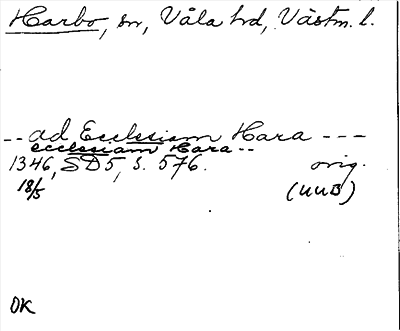 Harbo, sn, Våla hd, Västm. l.
-- ad Ecclesiam Hara ---
ecclesiam Hara --
1346, SD5, s. 576. orig.
18/5 (UUB)
OK